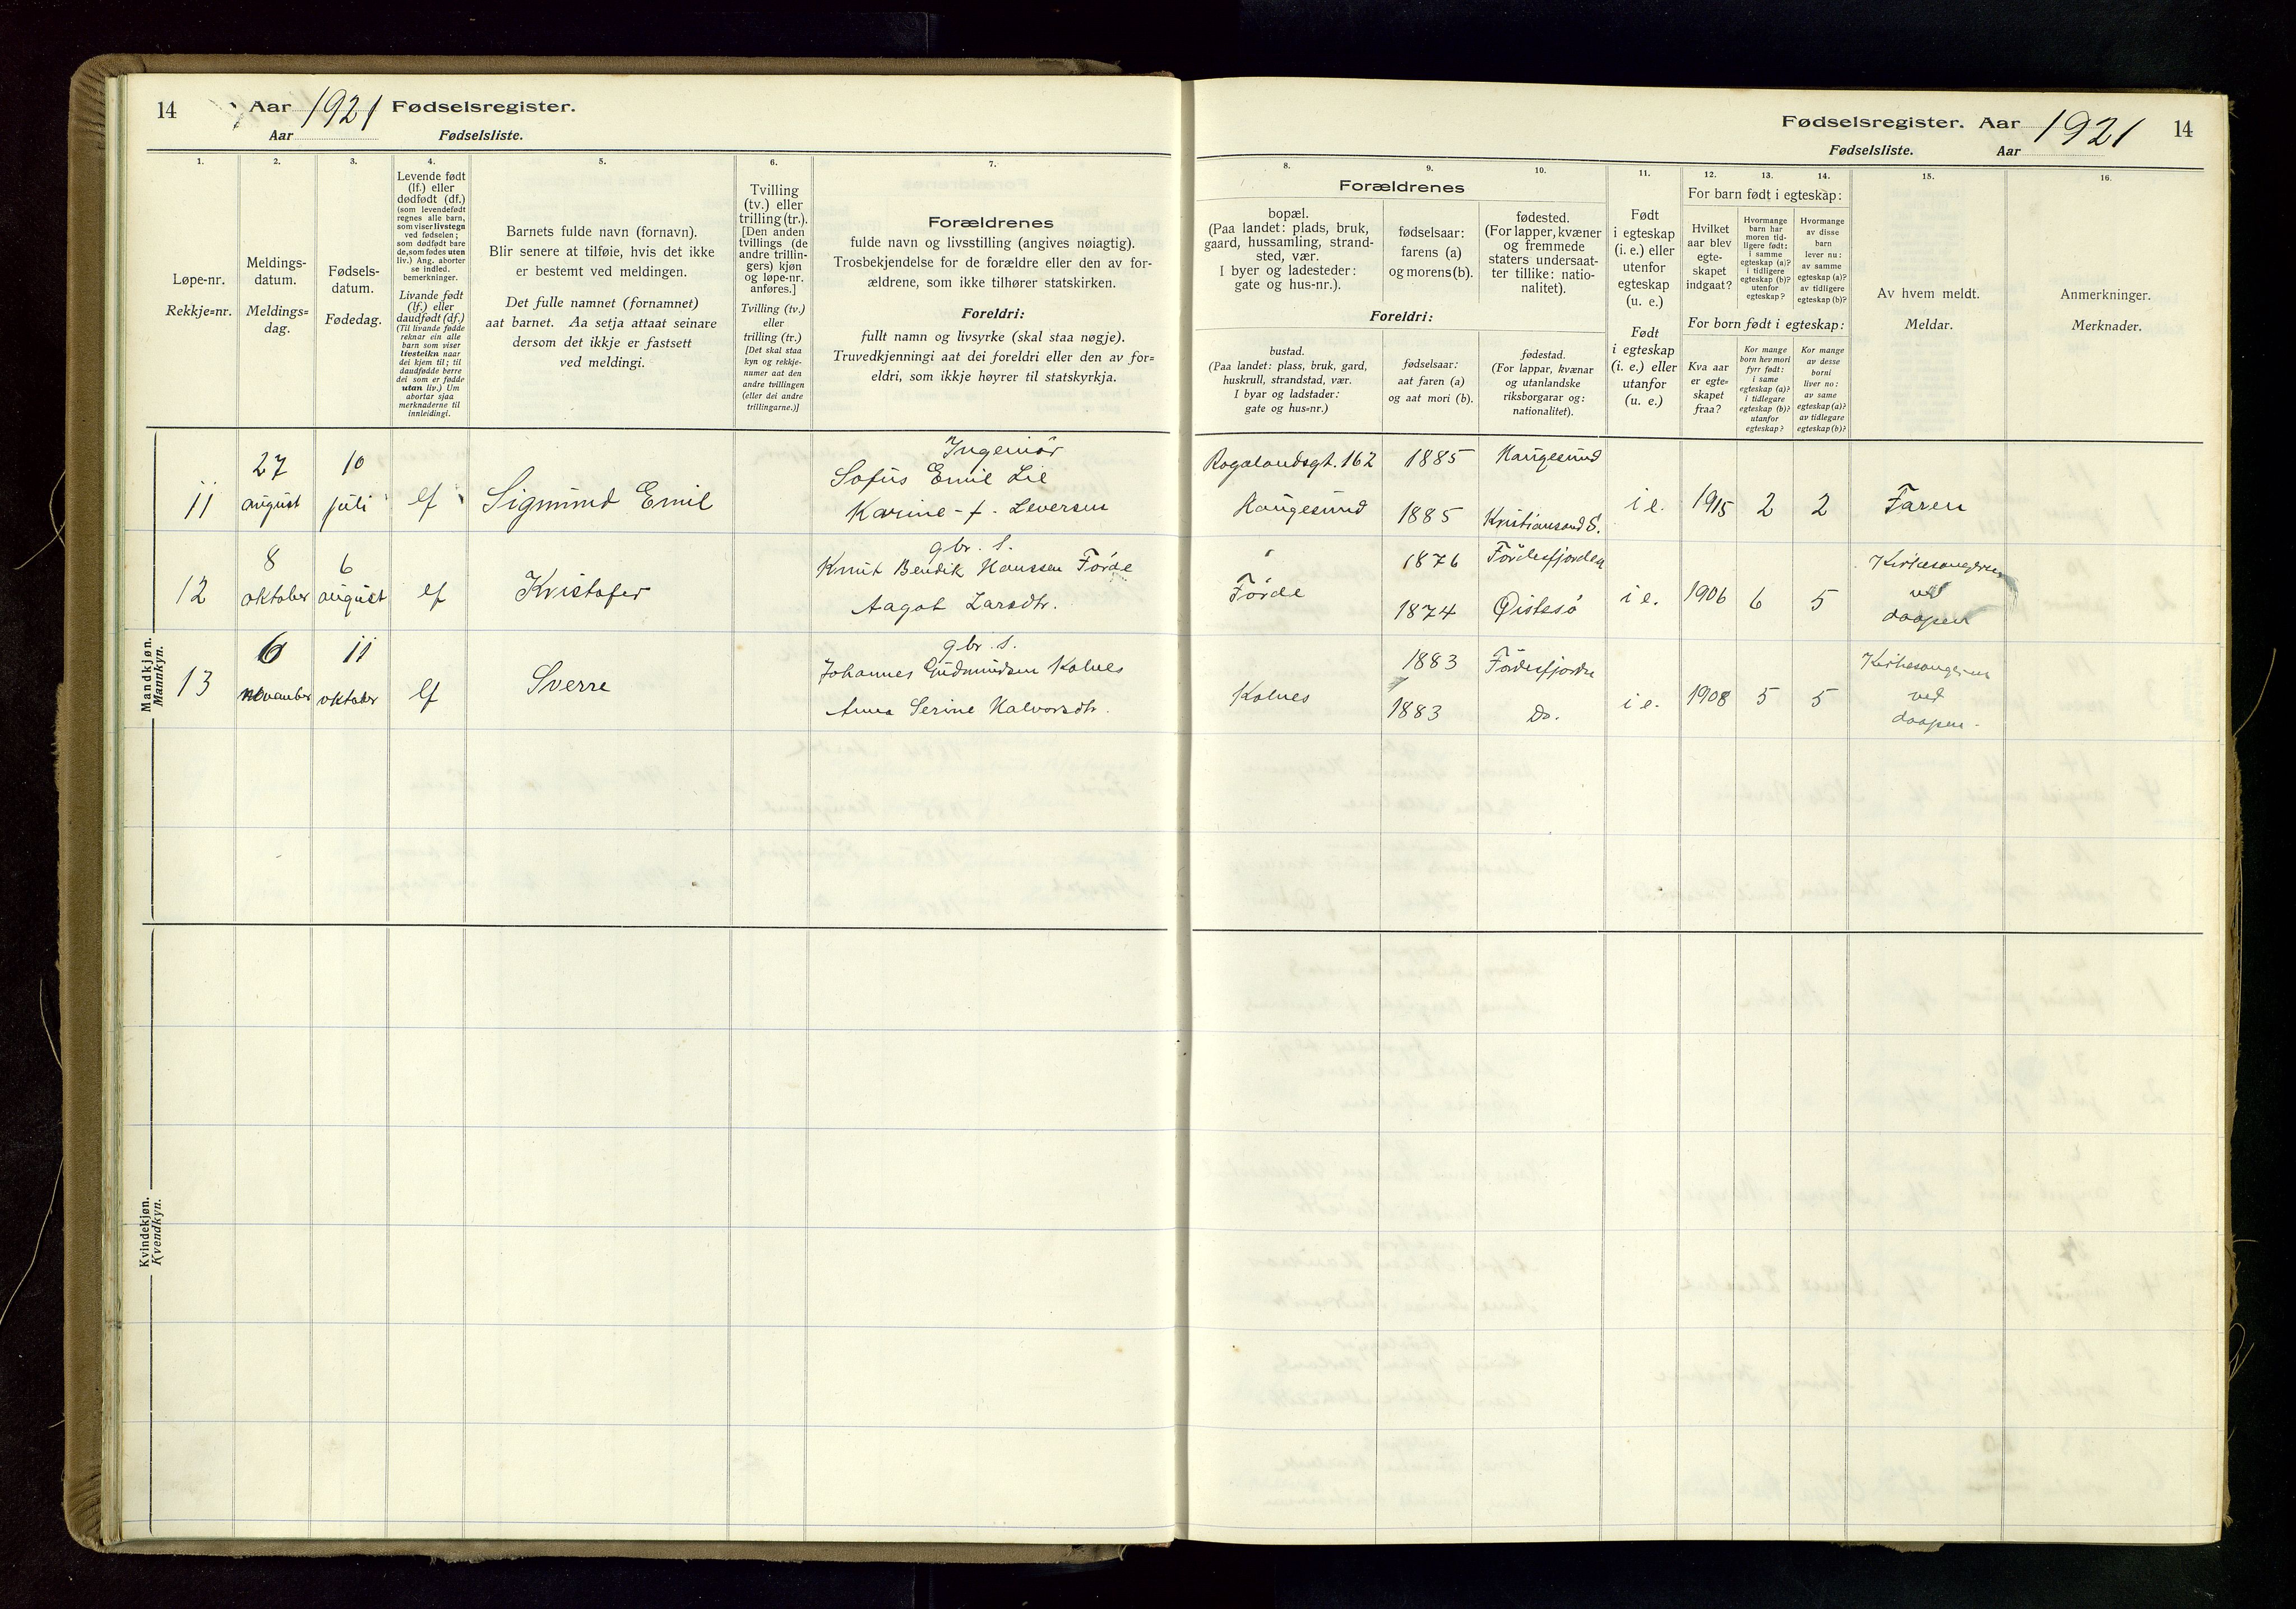 14 Aar 1921 Fødselsregister.
Aar Fødselsliste.
Fødselsregister. Aar 1921 14
Fødselsliste. Aar
1. 2. 3. 4. 5. 6. 7.
Løpe-nr.
Rekkje=nr.
Meldings-
datum.
Meldings=
dag.
Fødsels-
datum.
Fødedag.
Levende født
(lf.) eller
dødfødt (df.)
(som levendefødt
regnes alle barn,
som viser livstegn
ved fødselen;
som dødfødt bare
de, som fødes uten
liv.) Ang. aborter
se indled.
bemerkninger.
Livande født
(lf.) eller
daudfødt (df.)
(Til livande fødde
reknar ein alle
barn som viser
livsteikn naar
dei kjem til; til
daudfødde berre
dei som er fødde
utan liv.) Um
abortar sjaa
merknaderne til
innleidingi.
Barnets fulde navn (fornavn).
Blir senere at tilføie, hvis det ikke
er bestemt ved meldingen.
Det fulle namnet (fornamnet)
aat barnet. Aa setja attaat seinare
dersom det ikkje er fastsett
ved meldingi.
Tvilling
(tv.) eller
trilling (tr.).
[Den anden
tvillings (de
andre trillin-
gers) kjøn
og løpe-nr.
anføres.]
Tvilling (tv.)
eller
trilling (tr.)
[Det skal staa
kyn og rekkje-
numer aat den
andre tvillingen
(eller dei andre
trillingarne.)]
Forældrenes
fulde navn og livsstilling (angives nøiagtig).
Trosbekjendelse for de forældre eller den av for-
ældrene, som ikke tilhører statskirken.
Foreldri:
fullt namn og livsyrke (skal staa nøgje).
Truvedkjenningi aat dei foreldri eller den av for=
eldri, som ikkje høyrer til statskyrkja.
8. 9. 10. 11. 12. 13. 14. 15. 16.
Forældrenes
bopæl.
(Paa landet: plads, bruk,
gaard, hussamling, strand-
sted, vær.
I byer og ladesteder:
gate og hus-nr.).
fødselsaar:
farens (a)
og morens (b).
fødested.
(For lapper, kvæner
og fremmede
staters undersaat-
ter tillike: natio-
nalitet).
Foreldri:
bustad.
(Paa landet: plass, bruk, gard,
huskrull, strandstad, vær.
I byar og ladstader:
gate og hus=nr.)
fødselsaar:
aat faren (a)
og aat mori (b).
fødestad.
(For lappar, kvænar
og utanlandske
riksborgarar og:
nationalitet).
Født
i egteskap
(i. e.) eller
utenfor
egteskap
(u. e.)
Født
i egteskap
(i. e.) eller
utanfor
(u. e.)
For barn født i egteskap:
Hvilket
aar blev
egte-
skapet
indgaat?
Hvormange
barn har
moren tid-
ligere født:
i samme
egteskap (a)?
i tidligere
egteskap (b)?
utenfor
egteskap?
Hvormange
av disse
barn
lever nu:
av samme
egteskap (a)?
av tidligere
egteskap (b)?
For born født i egteskap:
Kva aar
er egte=
skapet
fraa?
Kor mange
born hev mori
fyrr født:
i same
egteskap (a)?
i tidlegare
egteskap (b)?
utanfor
egteskap?
Kor mange
av desse
borni
liver no:
av same
egteskap (a)?
av tidlegare
egteskap (b)?
Av hvem meldt.
Meldar.
Anmerkninger.
Merknader.
Mandkjøn.
Mannkyn.
11
27
august
10
juli
lf
Sigmund Emil
Ingeniør
Sofus Emil Lie
Karine - f. Seversen
Rogalandsgt. 162
Haugesund
1885
1885
Haugesund
Kristiansand S.
i e. 1915 2 2
Faren
12
8
oktober
6
august
lf
Kristofer
gbr. s.
Knut Bendik Hanssen Førde
Aagot Larsdtr.
Førde
1876
1874
Førdesfjorden
Øistesø
i e. 1906 6 5
Kirkesangeren
ved
daapen
13
6
november
11
oktober
lf
Sverre
gbr. s.
Johannes Gudmundsen Kolnes
Anna Serine Halvorsdtr.
Kolnes
1883
1883
Førdesfjorden
Do.
i e. 1908 5 5
Kirkesangeren
ved
daapen.
Kvindekjøn.
Kvendkyn.